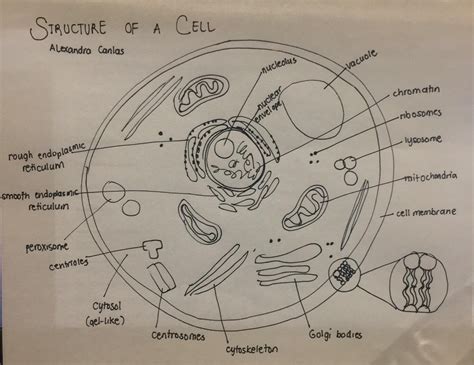 STRUCTURE OF A CELL
Alexandra Canlas
nucleolus
vacuole
nuclear
envelope
chromatin
ribosomes
lysosome
rough endoplasmic
reticulum
mitochondria
smooth endoplasmic
reticulum
cell membrane
peroxisome
centrioles
cytosol
(gel-like)
centrosomes
cytoskeleton
Golgi bodies